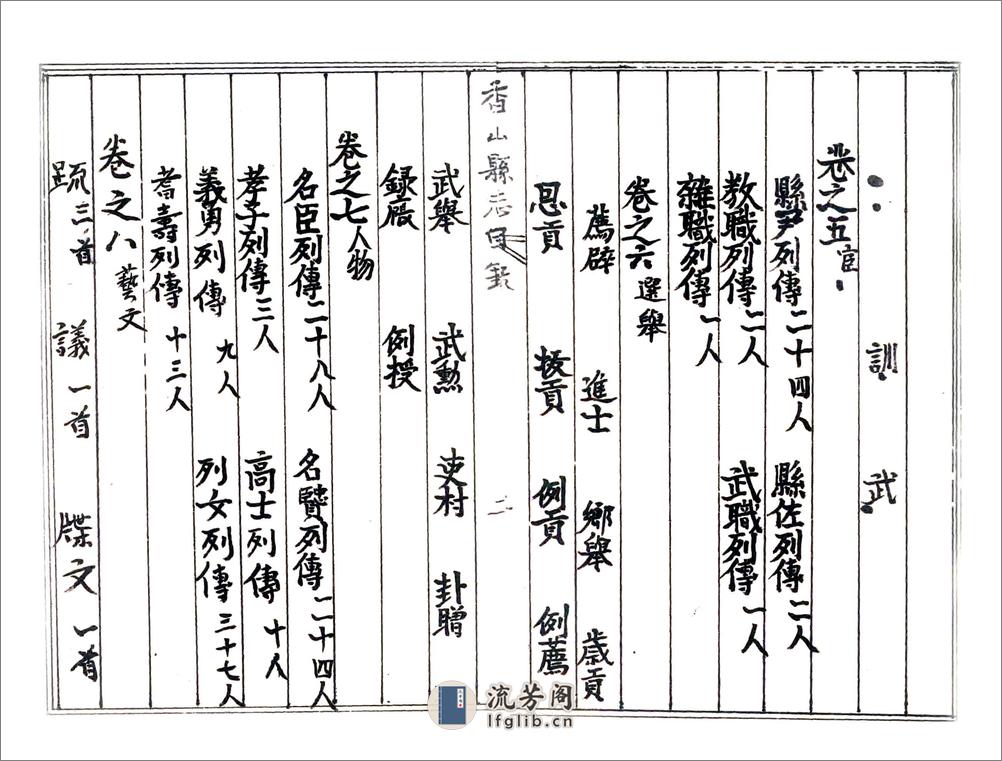 訓 武
卷之五 官
縣尹列傳二十四人 縣佐列傳二人
教職列傳二人 武職列傳一人
雜職列傳一人
卷之六 選舉
薦辟 進士 鄉舉 歲貢
恩貢 拔貢 例貢 例薦
香山縣志目錄 二
武舉 武勲 吏材 封贈
録廕 例授
卷之七 人物
名臣列傳二十八人 名賢列傳二十四人
孝子列傳三人 高士列傳十人
義勇列傳九人 列女列傳三十七人
耆壽列傳十三人
卷之八 藝文
疏三首 議一首 牒文一首
流芳阁
lfglib.cn